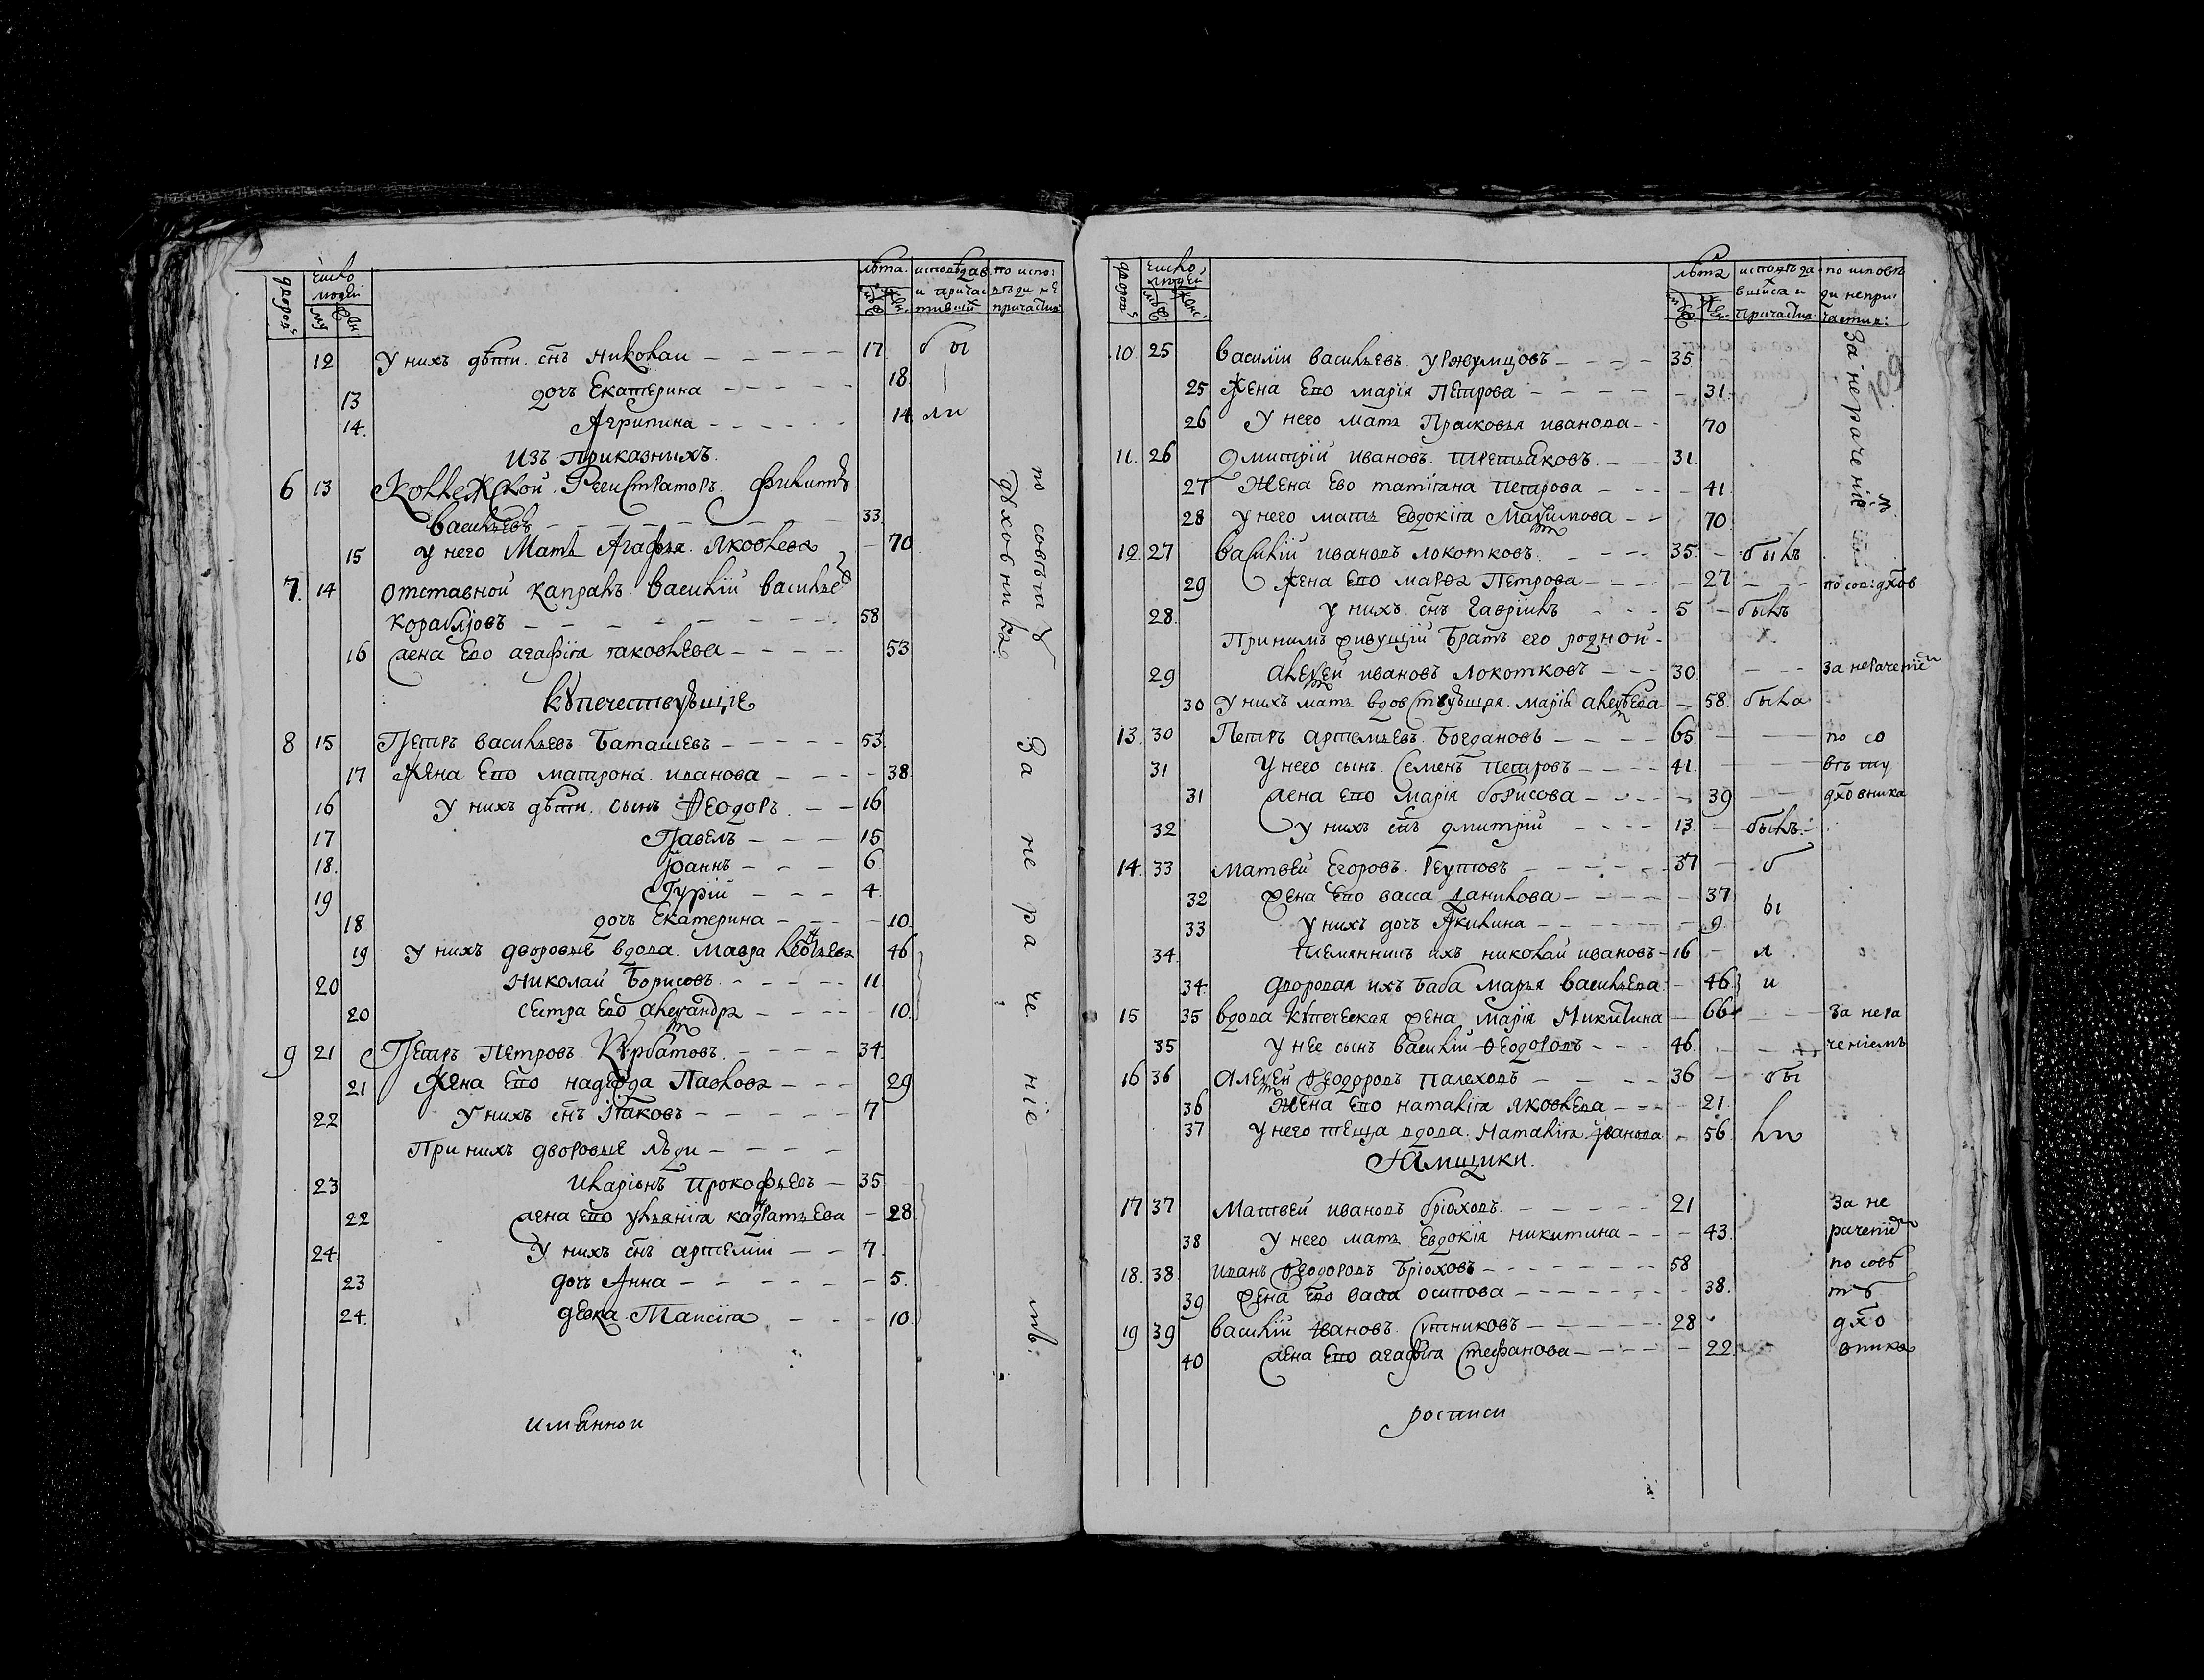 дворов
число людей
му
жен
лѣта
муж
жен
исповѣдав и причастившiи
по испо: вѣди не причастив:
12 У нихъ дѣти. сн҃ъ Николаи 17 бы
13 дочь Екатерина 18
14. Агрипина 14 ли
Изъ приказныхъ.
6 13 Коллежской Регистраторъ. Филипъ
Васильевъ 33
15 у него Мать Агафья Яковлева 70
по совѣту духовника
7. 14 Отставной капралъ Василiй Василье
Кораблiовъ 58
16 жена ево агафiя яковлева 53
Купечествующiе
8 15 Петръ васильевъ Баташевъ 53
17 Жена Ево матрона ивaнова 38
16 у нихъ дѣти. сынъ Ѳеодоръ 16
17 Павелъ 15
18. Iоаннъ 6
19 Гурiй 4
18 дочь Екатерина 10
19 у нихъ дворовые вдова. Мавра 46
20 Николай Борисовъ 11
20 сестра Ево алеѯандра 10
За нераченiемъ:
9 21 Петръ Петровъ Курбатовъ 34
21 Жена Ево надежда Павлова 29
22 у нихъ сн҃ъ Iяковъ 7
При нихъ дворовые люди
23 Иларiонъ Прокофьевъ 35
22 жена Ево ульянiя кадратьева 28
24 у нихъ сн҃ъ артемiи 7
23 дочь Анна 5.
24. девка Таисiя 10
имянной
дворов
число людей
муж
женс.
лѣта
муж
жен
исповѣдавшися и причастив
по исповѣди непричастив:
109
10 25 Василiи васильевъ уржумцовъ 35
25 Жена Ево марiя Петрова 31
За нераченiемъ
26 У него мать Прасковья иванова 70
11. 26 Дмитрiй ивановъ Третьяковъ 31
27 Жена Ево татiяна Петрова 41
28 у него мать Евдокiя Маѯимова 70
12 27 Василiй ивановъ Локотковъ 35 былъ
29 жена Ево марѳа Петрова 27 по сов: дх҃ов
28 у нихъ сн҃ъ Гаврiилъ 5 былъ
При нимъ живущiй братъ его родной
29 алеѯеи ивановъ Локотковъ 30 за нераченiем
30 У нихъ мать вдовствующая. марiя алеѯѣева 58. была
13. 30 Петръ артемьевъ Богдановъ 65 по со
31 у него сынъ. Семенъ Петровъ 41 вѣту
31 жена Ево марiя борисова 39 дх҃овника
32 у нихъ сн҃ъ дмитрiй 13 былъ
14. 33 матвей Егоровъ Реутовъ 37 б
32 жена Ево васса данилова 37 ы
33 у нихъ дочь Акилина 9
34 племянникъ ихъ николай ивановъ 16 л
34 дворовая ихъ баба марья васильева 46 и
15 35 вдова купеческая жена марiя Никитина 66 за нера
35 у нее сынъ василiй Ѳеодоровъ 46 ченiемъ
16 36 Алеѯей Ѳеодоровъ Палеховъ 36 бы
36 Жена Ево наталiя яковлева 21
37 у него теща вдова. Наталiя Iванова 56 ли
Ямщики.
17 37 Матвей ивановъ брюховъ 21 За не
38 у него мать Евдокiя никитина 43 раченiем
18. 38 Иванъ Ѳеодоровъ Брюховъ 58 по совѣ
39 жена Ево васса осипова 38 ту
19 39 василiй Ивановъ Ситниковъ 28 дх҃о
40 жена Ево агафiя Стефанова 22 вника
росписи